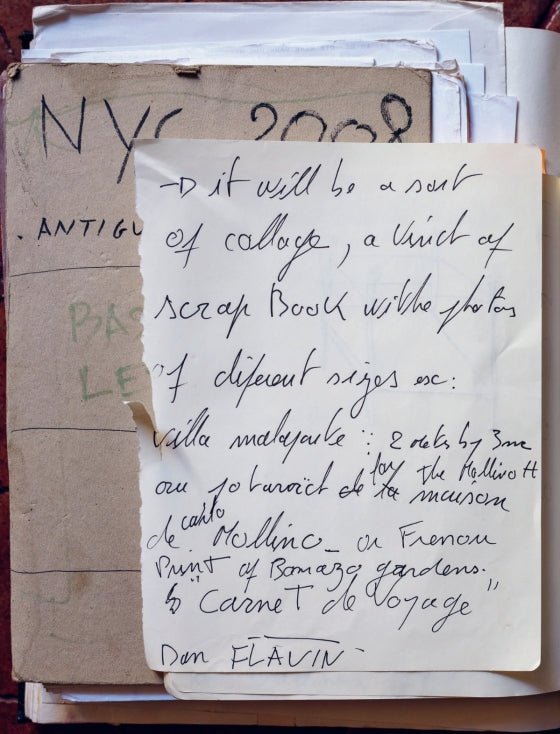 NYC 2008
. ANTIGU
BAS
LE
→ it will be a sort
of collage, a kind of
scrap Book withe photos
of diferent sizes ex:
villa malaparte : 2 meters by 3m
ou polaroid de la maison
for The Mollino H
de carlo Mollino _ or French
Print of Bomazo gardens.
"Carnet de Voyage"
Dan FLAVIN